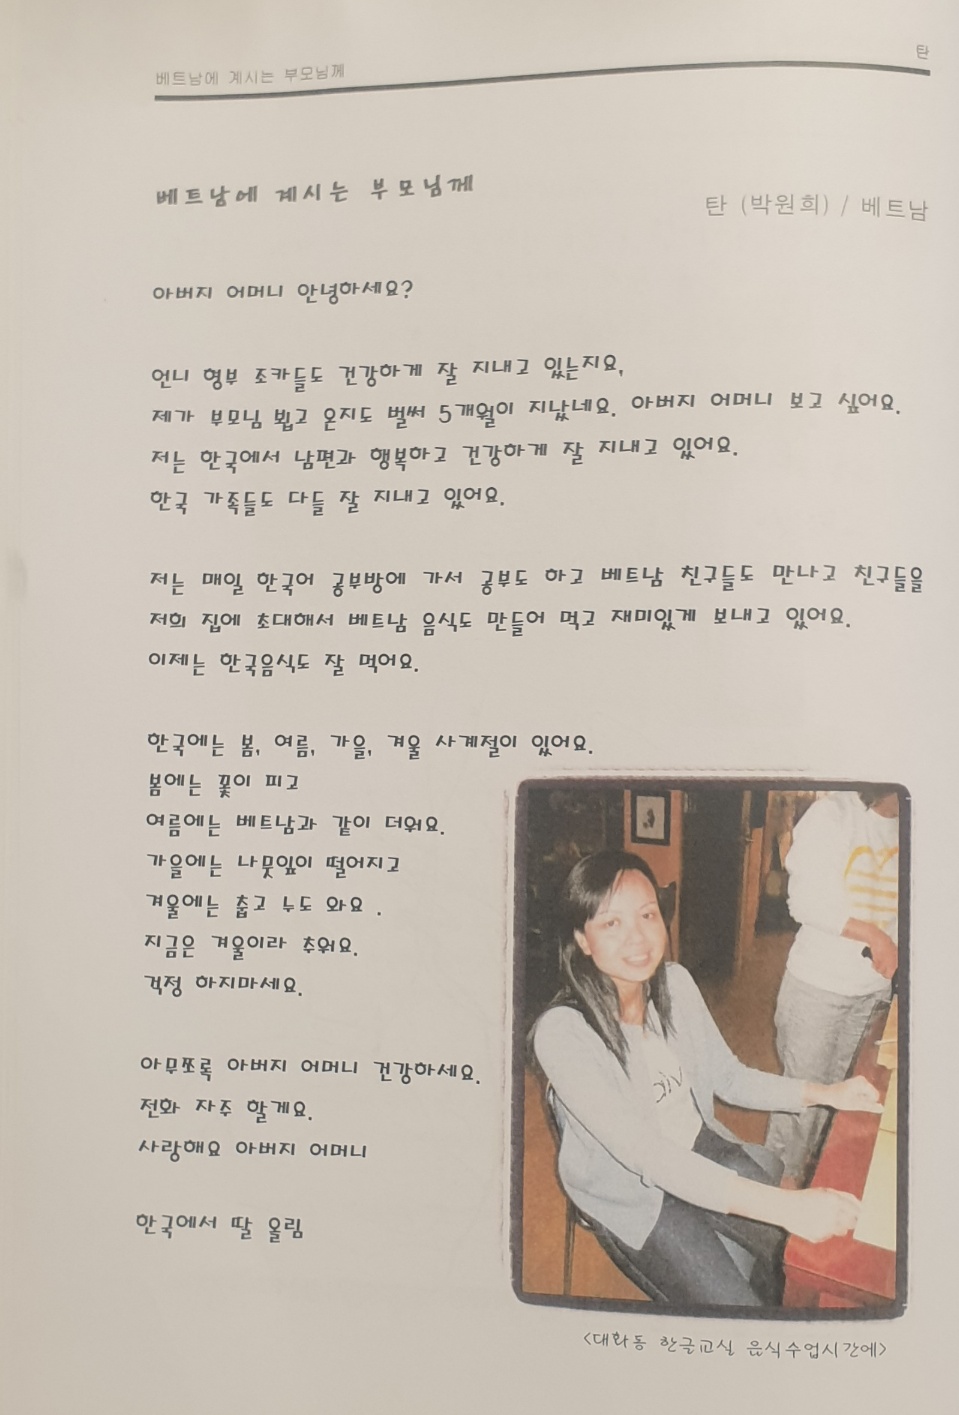 베트남에 계시는 부모님께
탄
베트남에 계시는 부모님께
탄 (박원희) / 베트남
아버지 어머니 안녕하세요?
언니 형부 조카들도 건강하게 잘 지내고 있는지요,
제가 부모님 뵙고 온지도 벌써 5개월이 지났네요. 아버지 어머니 보고 싶어요.
저는 한국에서 남편과 행복하고 건강하게 잘 지내고 있어요.
한국 가족들도 다들 잘 지내고 있어요.
저는 매일 한국어 공부방에 가서 공부도 하고 베트남 친구들도 만나고 친구들을
저희 집에 초대해서 베트남 음식도 만들어 먹고 재미있게 보내고 있어요.
이제는 한국음식도 잘 먹어요.
한국에는 봄, 여름, 가을, 겨울 사계절이 있어요.
봄에는 꽃이 피고
여름에는 베트남과 같이 더워요.
가을에는 나뭇잎이 떨어지고
겨울에는 춥고 누도 와요 .
지금은 겨울이라 추워요.
걱정 하지마세요.
아무쪼록 아버지 어머니 건강하세요.
전화 자주 할게요.
사랑해요 아버지 어머니
한국에서 딸 올림
<대화동 한글교실 음식수업시간에>